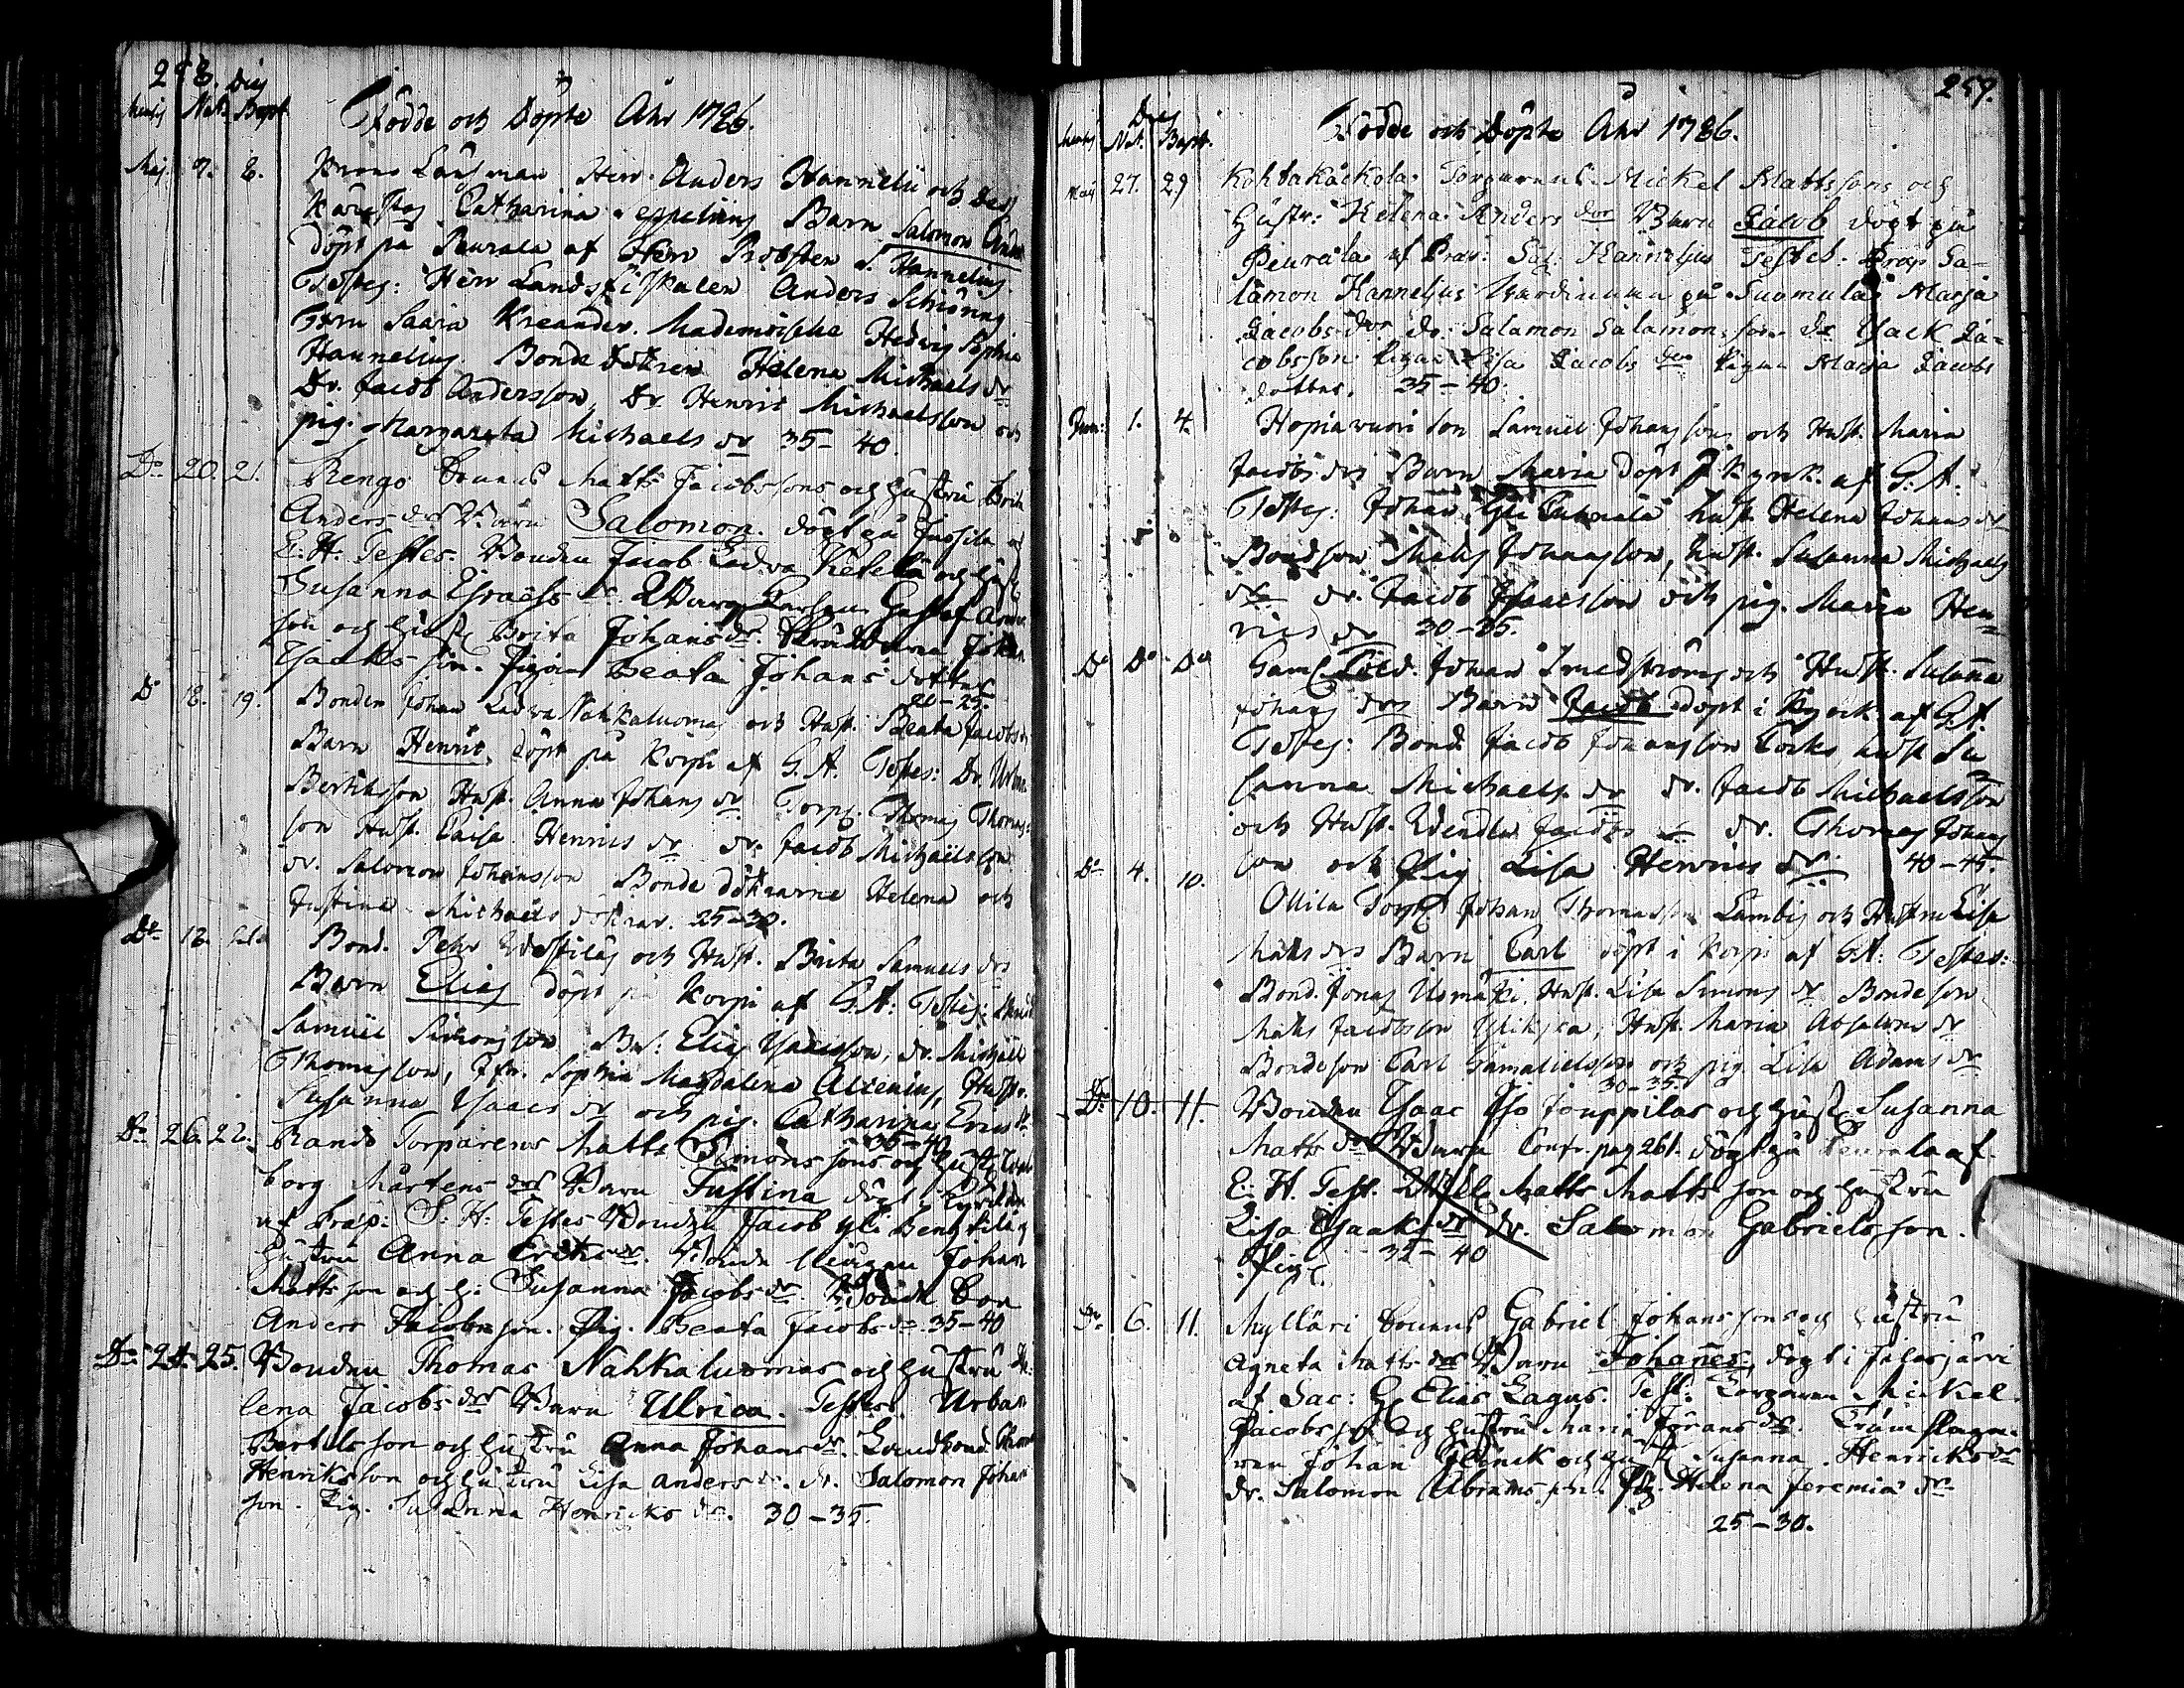 258. Dies
Mensis Nat. Bapt.
Födde och Döpte Åhr 1786.
Maj. 7. 8. Krono Länsman Herr Anders Hannelii och dess
Käresta Catharina Seppelii Barn Salomon Anders
döpt på Peurala af Herr Probsten S. Hannelius
Testes: Herr Landsfiskalen Anders Schiöring
Fru Saara Kreander. Mademoiselle Hedvig Sophia
Hannelius. Bonde Dottren Helena Michaels dr
Dr. Jacob Andersson, Dr Henric Michaelsson och
pig. Margareta Michaels dr 35-40.
Do 20. 21. Rengo Matts Jacobssons och Hustru Brita
Anders drs Barn Salomon. döpt på Jussila af
E. H. Testes. Bonden Jacob Ladva Ketela och Hust.
Susanna Esraels dr. Gustaf Anders
son och Hust. Brita Johans dr. Johan
Isaaks son. Pigan Beata Johans dotter
20-25.
Do 18. 19. Bonden Johan Ladva Nahkaluomas och Hust. Beata Jacobs drs
Barn Henric, döpt på Korpi af G. A. Testes: Dr. Urban
Bertilsson Hust. Anna Johans dr Torp. Thomas Thomas-
son Hust. Caisa Henrics dr dr. Jacob Michaelsson
dr. Salomon Johansson Bonde döttrarne Helena och
Justina Michaels döttrar. 25-30.
Do 18. Bond. Pehr Westiläs och Hust. Brita Samuels drs
Barn Elias döpt på Korpi af G. A: Testes:
Samuel Simonsson, Bs: Elias Isacsson, dr. Michael
Thomasson, Jfr. Sophia Magdalena Alcenius, Hustr.
Susanna Isaacs dr och pig. Catharina Erics dr
35-40
Do 26. 22. Rando Torparens Matts Simons sons och Hust. Wal
borg Mårtens drs Barn Justina döpt i Kyrkan
af Prap: S: H: Testes Bonden Jacob Yli Benttiläs
Hustru Anna Eriks dr. Johan
Matts son och h: Susanna Jacobs dr. Bonde Son
Anders Jacobsson. Pig. Beata Jacobs dr 35-40
Do 24. 25. Bonden Thomas Nahkaluomas och Hustru He-
lena Jacobs drs Barn Ulrica. Testes: Urban
Bertilsson och Hustru Anna Johans dr. Landbond.
Henriksson och Hustru Lisa Anders dr. dr. Salomon Johans
son. Pig. Susanna Henricks dr. 30-35.
259.
Dies
Mensis Nat. Bapt.
Födde och Döpte Åhr 1786.
Maij 27. 29 Kohtakåskola Torparens Mickel Mattssons och
Hustr: Helena Anders drs Barn Jacob döpt på
Peurala af Prap: Sal: Hannelius Testes: Prap Sa-
lamon Hannelius Wärdinnan på Suomula Marja
Jacobs dr. dr. Salamon Salamons son dr Isack Ja-
cobsson Pigan Lisa Jacobs dr Pigan Marja Jacobs
dotter. 35-40
Juni: 1. 4. Hopiavuori son Samuel Johanssons och Hust. Maria
Jacobs drs Barn Maria döpt i Kyrk. af G. A.
Testes: Johan Yli hust. Helena Johans dr
Bondson Matts Johansson, hust. Susanna Michaels
dr dr. Jacob Isaacsson och pig. Maria Hen-
rics dr 30-35.
Do Do Do Gaml. Sold. Johan Smedströms och Hust. Susanna
Johans drs Barn Jacob döpt i Kyrk. af G. A.
Testes: Bond. Jacob Johansson hust. Su
sanna Michaels dr dr. Jacob Michaelsson
och Hust. Wendla Jacobs dr dr. Thomas Johans
son och Pig. Lisa Henrics dr 40-45.
Do 4. 10. Ollila Torp. Johan Thomasson Lambis och Hustru Lisa
Matts drs Barn Carl döpt i Korpi af G. A: Testes:
Bond. Jonas Usmäki, Hust. Lisa Simons dr Bondeson
Matts Jacobsson Hust. Maria Absalons dr
Bondeson Carl Gamalielsson och pig. Lisa Adams dr
30-35.
Do 10. 11. Bonden Isaac Iso Jouppilas och Hust. Susanna
Matts drs Barn Confr. pag 261. döpt på Peurala af
E. H. Test. Matts Mattsson och Hustru
Lisa Isaaks dr dr. Salomon Gabrielsson.
Pig. 35-40
Do 6. 11. Mylläri Gabriel Johanssons och Hustru
Agneta Matts drs Barn Johanes, döpt i Jalasjärvi
af Sac: Elias Lagus. Test: Torparen Mickel
Jacobsson och Hustru Maria Jörans dr. Trumslaga-
ren Johan Glinck och Hust. Susanna Henricks dr
dr. Salomon Abrams son. Pig. Helena Jeremiæ dr
25-30.